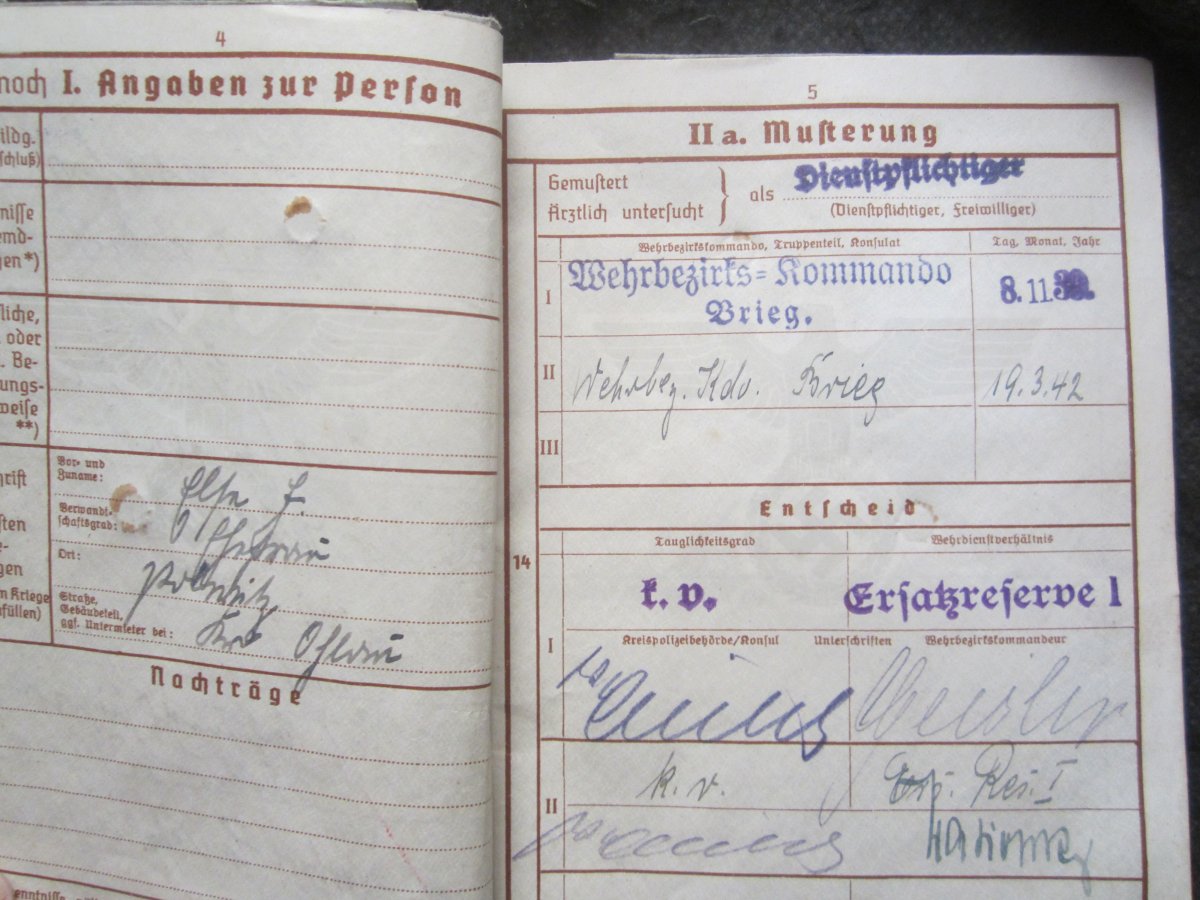 4
noch I. Angaben zur Person
ildg.
schluß)
nisse
emd-
gen*)
liche,
oder
. Be-
ungs-
weise
**)
Vor- und
Zuname:
Else F.
Verwandt-
schaftsgrad:
Ehefrau
Ort:
Straße,
Gebäudeteil,
ggf. Untermieter bei:
Ohlau
hrift
sten
e-
gen
m Kriege
füllen)
Nachträge
enntnisse
5
II a. Musterung
Gemustert
Ärztlich untersucht
} als
Dienstpflichtiger
(Dienstpflichtiger, Freiwilliger)
Wehrbezirkskommando, Truppenteil, Konsulat
Tag, Monat, Jahr
I
Wehrbezirks=Kommando
Brieg.
8. 11 39.
II
Wehrbez. Kdo. Brieg
19.3.42
III
Entscheid
14
Tauglichkeitsgrad
Wehrdienstverhältnis
I
k. v.
Ersatzreserve 1
Kreispolizeibehörde/Konsul
Unterschriften
Wehrbezirkskommandeur
II
k. v.
Ers. Res. I